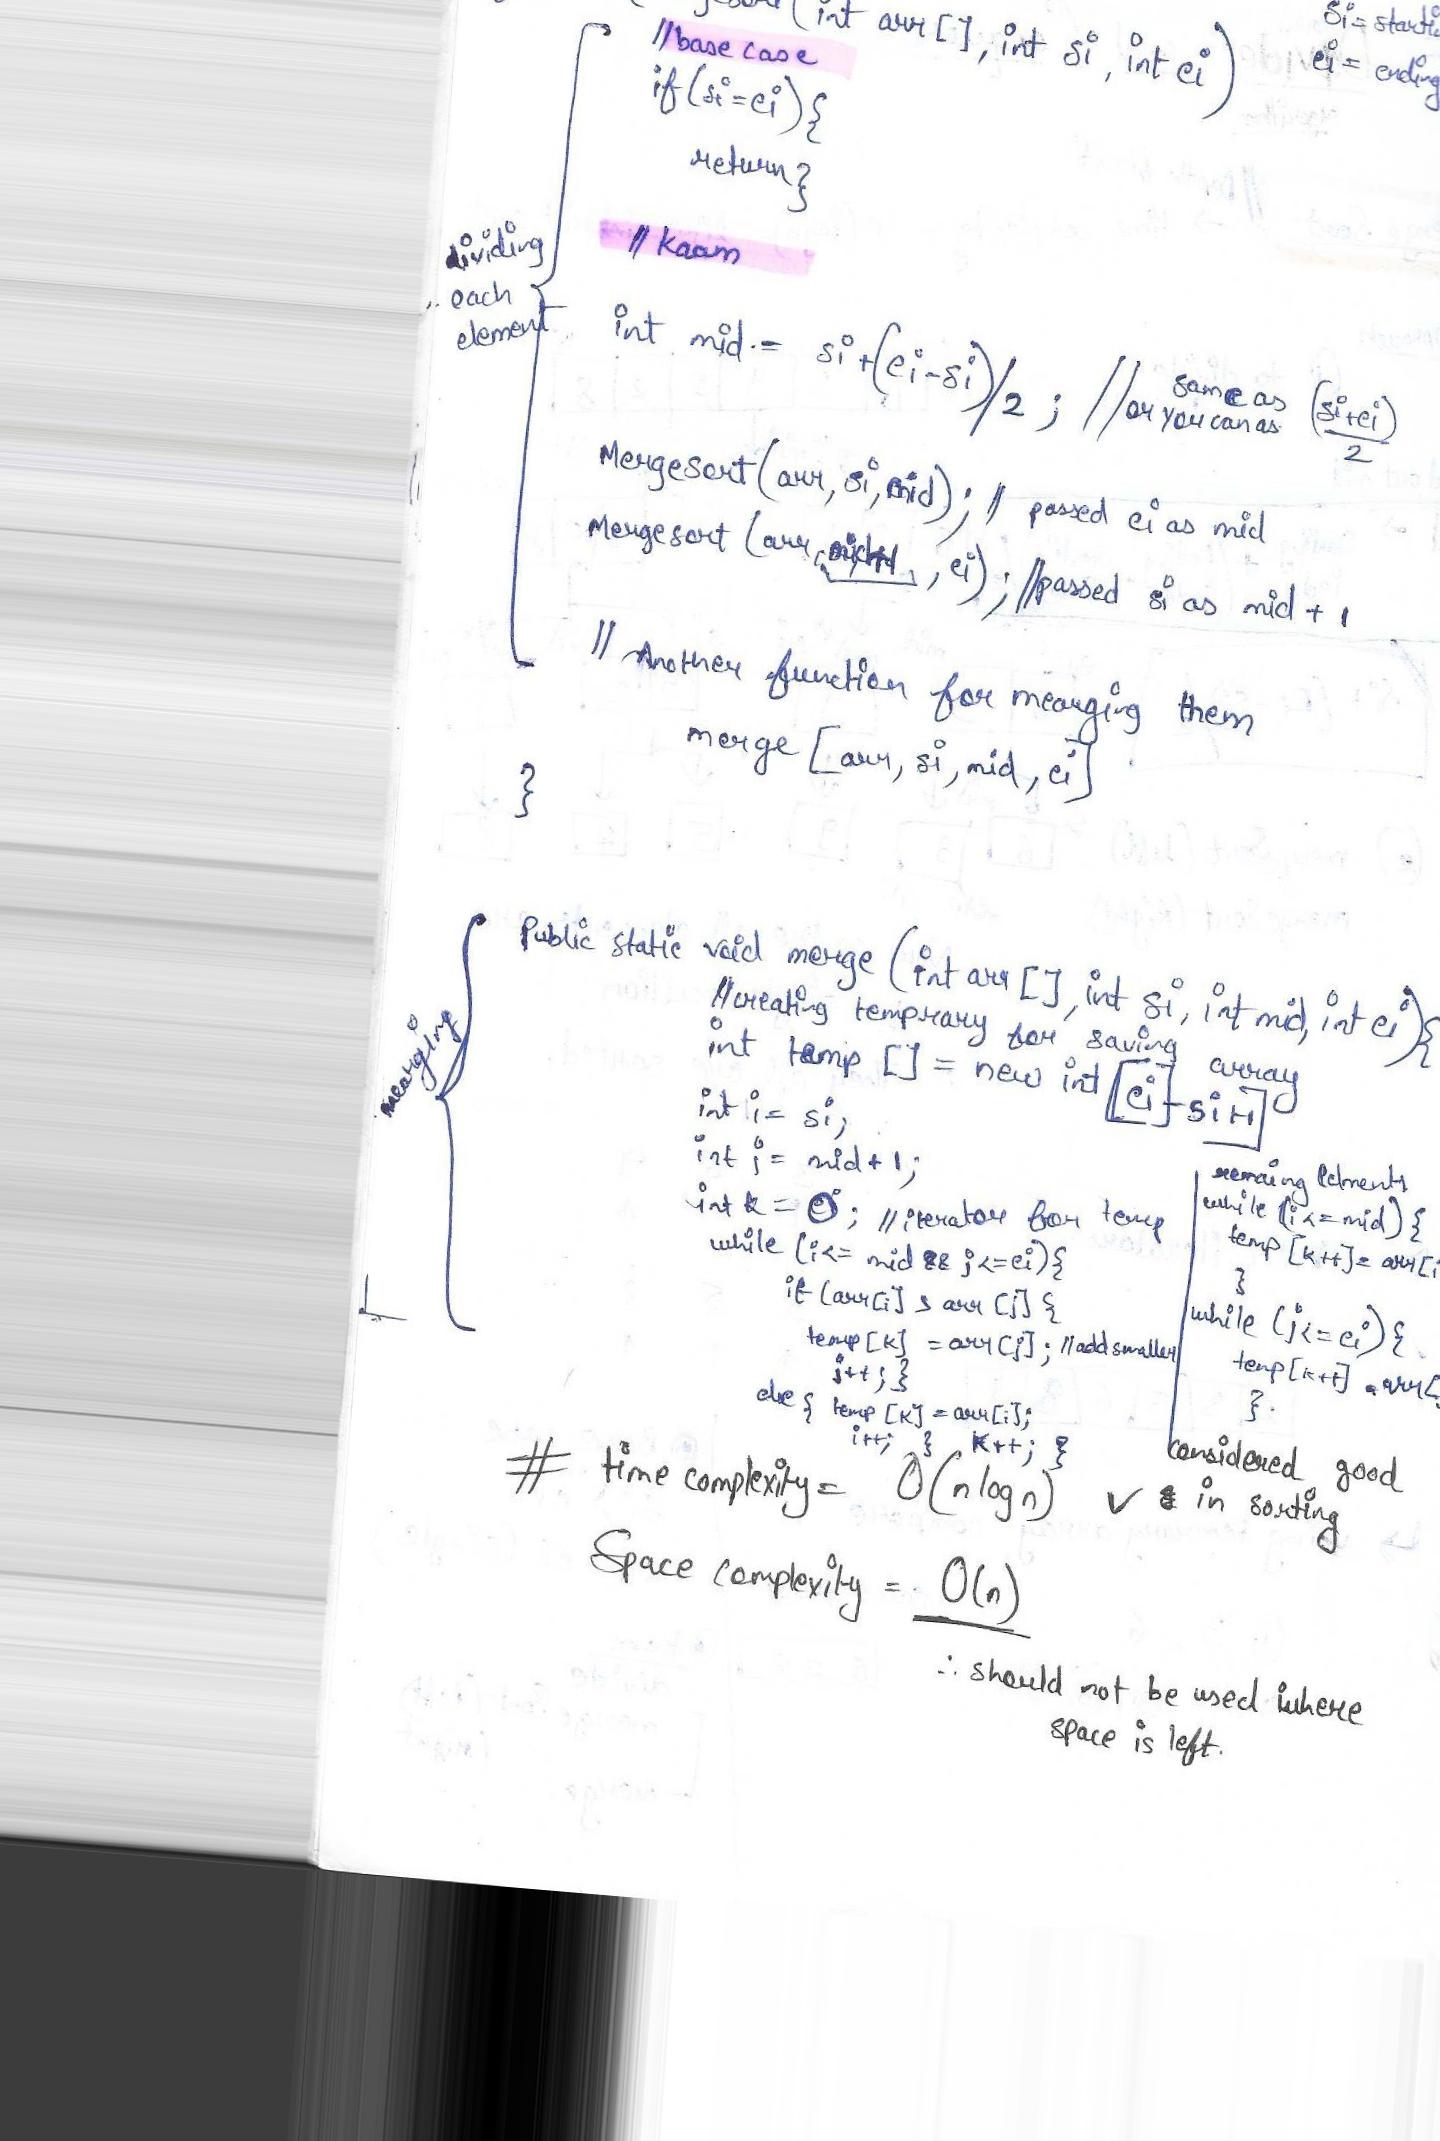 (int arr [], int si, int ei)
si = starti
ei = ending
//base case
if(si=ei){
return}
dividing
each
element
// kaam
int mid = si+(ei-si)/2 ; // same as (si+ei)/2
or you can as
Mergesort(arr, si, mid); // passed ei as mid
Mergesort (arr, mid+1, ei); //passed si as mid + 1
// Another function for mearging them
merge [arr, si, mid, ei]
}
mearging
Public static void merge (int arr [], int si, int mid, int ei){
//creating temprary for saving array
int temp [] = new int [ei]-si+1]
int i = si;
int j = mid+1;
int k = 0; //iterator for temp
while (i<= mid && j<=ei){
if (arr[i] > arr [j] {
temp [k] = arr [j]; //add smaller
j++; }
else { temp [k] = arr[i];
i++; } k++; }
remaing Eelments
while (i<=mid) {
temp [k++]= arr[i
}
while (j<=ei){
temp[k++] = arr[
}.
# time complexity = O(n log n) ✓ in sorting
considered good
Space complexity = O(n)
∴ should not be used where
space is left.